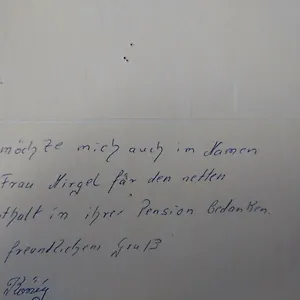 möchte mich auch im Namen
Frau Nirgel für den netten
thalt in ihrer Pension bedanken.
freundlichem Gruß
König